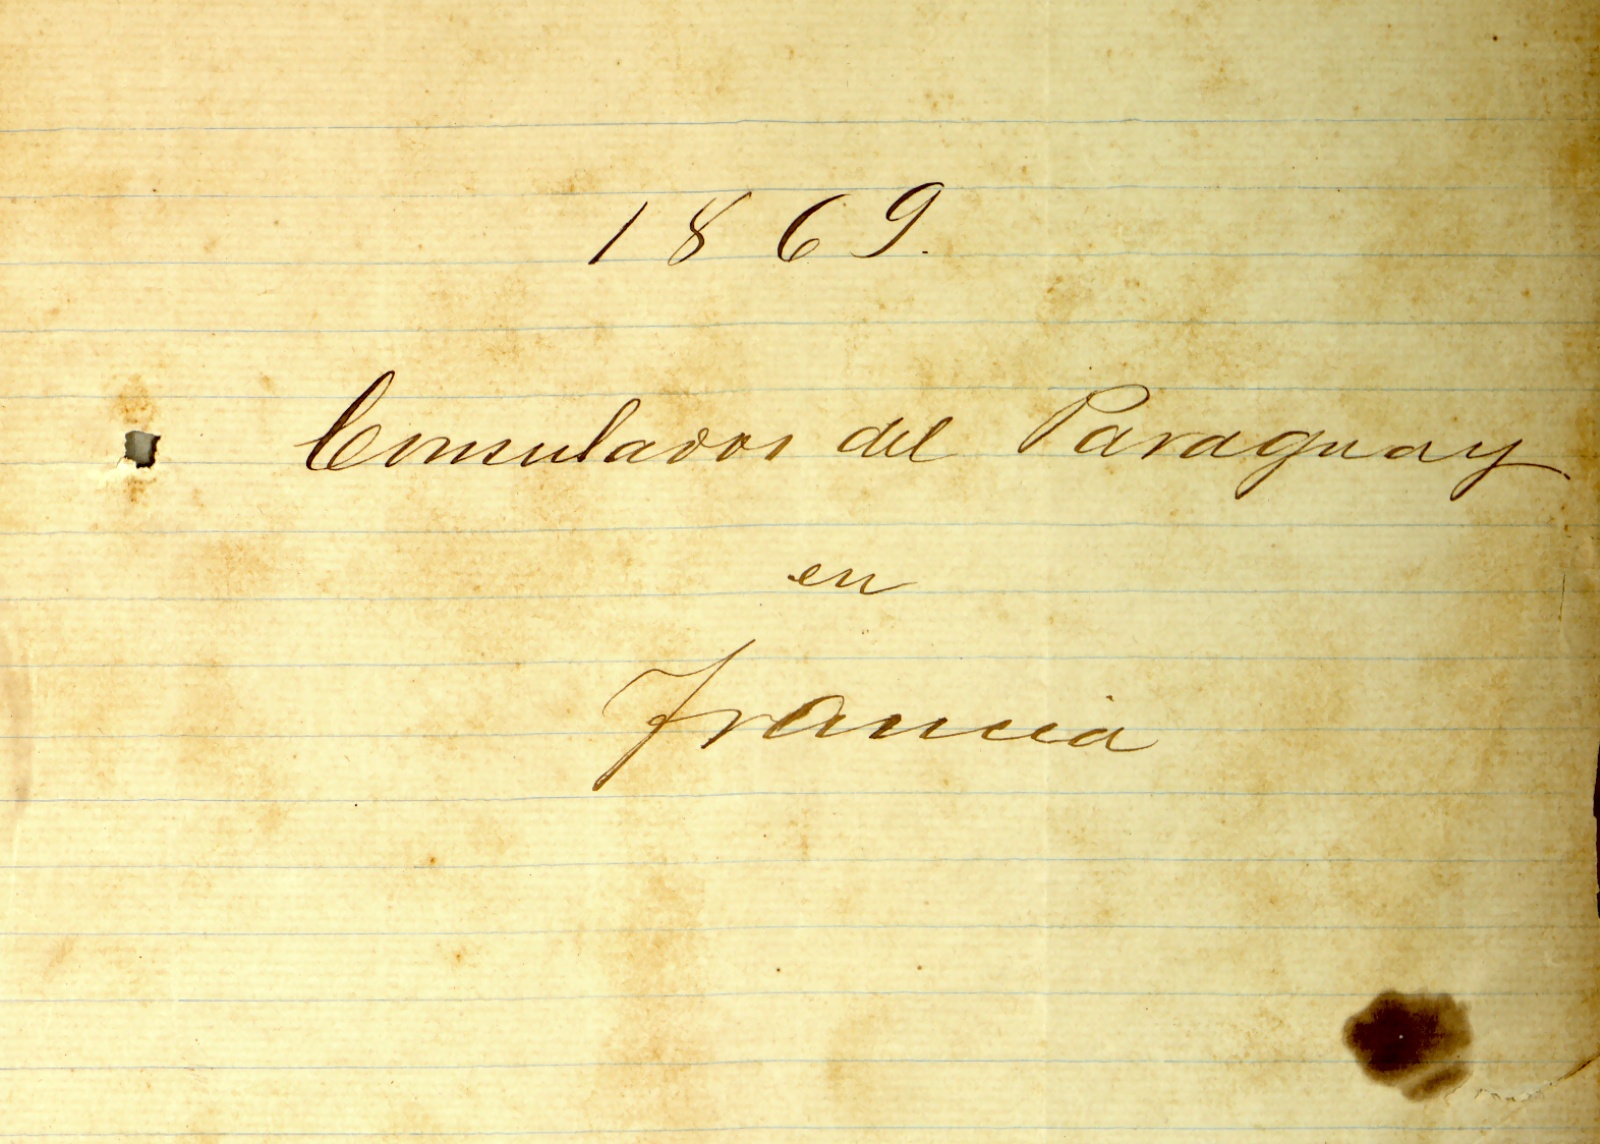 1869.
Consulados del Paraguay
en
Francia